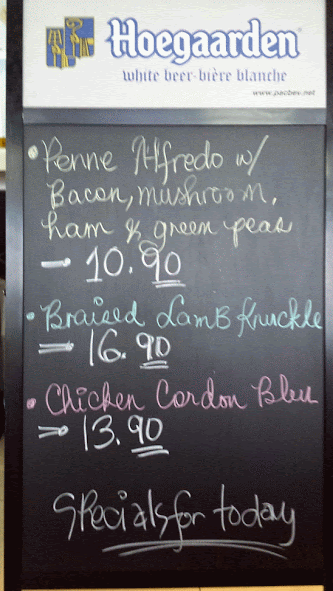 Hoegaarden
white beer-bière blanche
www.pacbev.net
• Penne Alfredo w/
Bacon, mushroom,
ham & green peas
- 10.90
• Braised Lamb Knuckle
= 16.90
• Chicken Cordon Bleu
=> 13.90
Specials for today